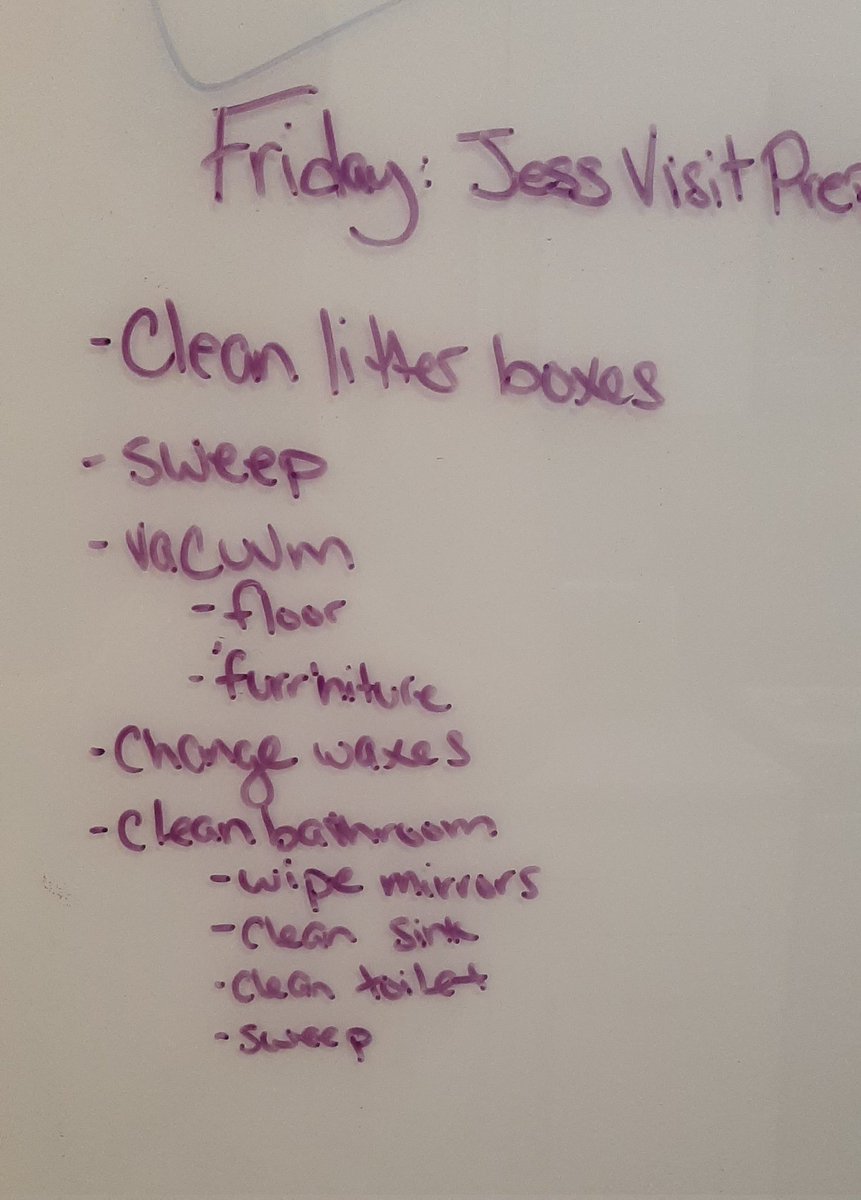 Friday: Jess Visit Pre
- Clean litter boxes
- sweep
- vacuum
- floor
- furriniture
- Change waxes
- Clean bathroom
- wipe mirrors
- Clean sink
- clean toilet
- sweep